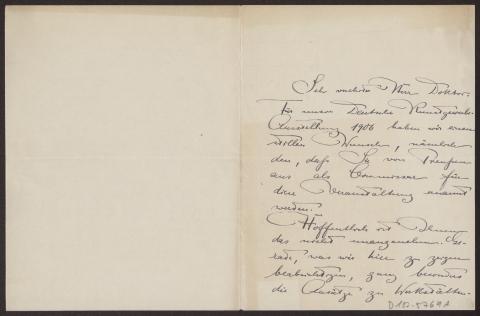 Sehr verehrter Herr Doktor.
Für unsere Deutsche Kunstgewerbe-
Ausstellung 1906 haben wir einen
stillen Wunsch, nämlich
den, daß Sie von Preußen
aus als Commissar für
diese Veranstaltung ernannt
werden.
Hoffentlich ist Ihnen
das nicht unangenehm. Ge-
rade, was wir hier zu zeigen
beabsichtigen, ganz besonders
die Ansätze zu Werkstätten-
D 102-5769A